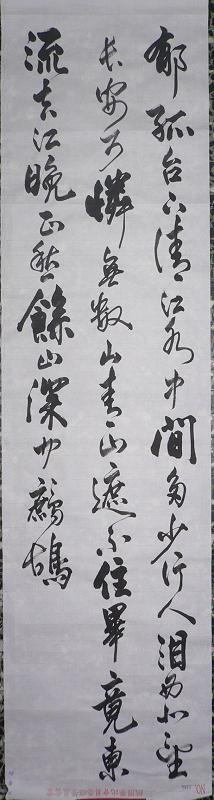 郁孤台下清江水中間多少行人泪西北望
長安可憐無数山青山遮不住畢竟東
流去江晚正愁餘山深聞鷓鴣